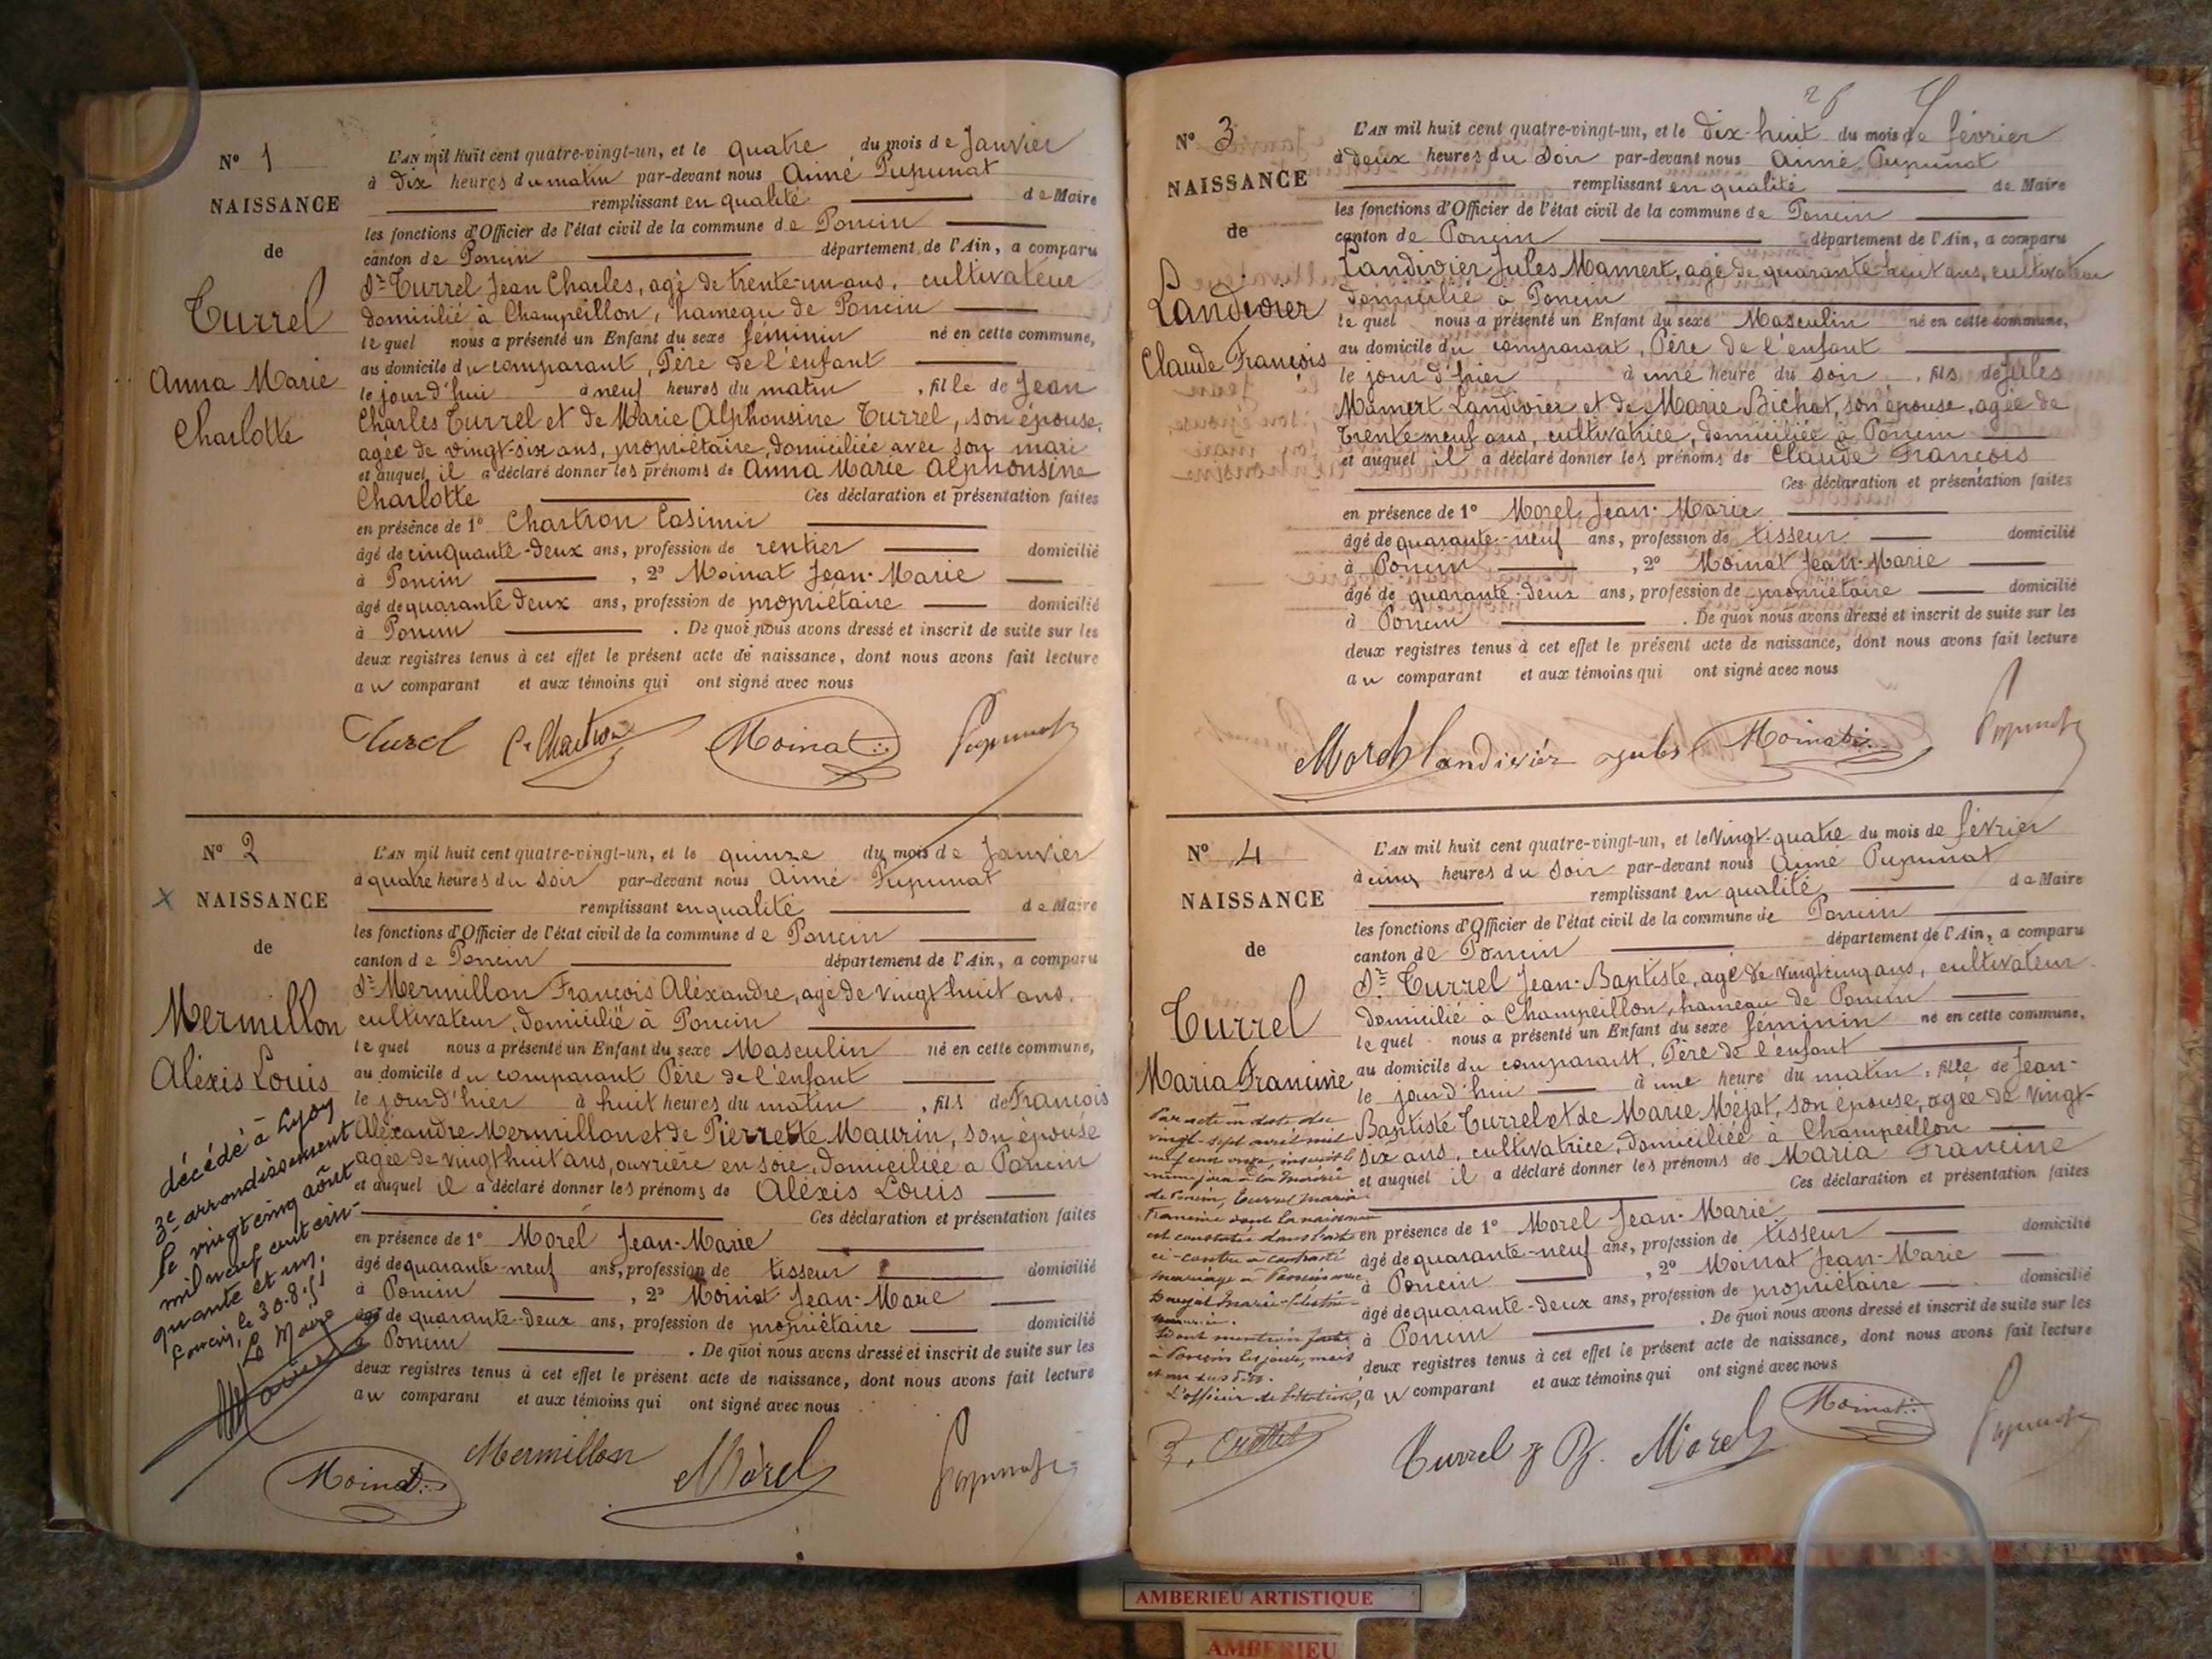 N° 1
NAISSANCE
de
Turrel
Anna Marie
Charlotte
L'AN mil huit cent quatre-vingt-un, et le quatre du mois de Janvier
à dix heures du matin par-devant nous Aimé Pupunat
remplissant en qualité de Maire
les fonctions d'Officier de l'état civil de la commune de Poncin
canton de Poncin département de l'Ain, a comparu
Sr Turrel Jean Charles, agé de trente-un ans, cultivateur
domicilié à Champeillon, hameau de Poncin
lequel nous a présenté un Enfant du sexe féminin né en cette commune,
au domicile du comparant, Père de l'enfant
le jour d'hui à neuf heures du matin, fille de Jean
Charles Turrel et de Marie Alphonsine Turrel, son épouse,
agée de vingt-six ans, propriétaire, domiciliée avec son mari
et auquel il a déclaré donner les prénoms de Anna Marie Alphonsine
Charlotte Ces déclaration et présentation faites
en présence de 1° Chartron Casimir
âgé de cinquante-deux ans, profession de rentier domicilié
à Poncin, 2° Moinat Jean-Marie
âgé de quarante deux ans, profession de propriétaire domicilié
à Poncin. De quoi nous avons dressé et inscrit de suite sur les
deux registres tenus à cet effet le présent acte de naissance, dont nous avons fait lecture
au comparant et aux témoins qui ont signé avec nous
Turel C. Chartron Moinat Pupunat
N° 2
X NAISSANCE
de
Mermillon
Aléxis Louis
décédé à Lyon
3e arrondissement
le vingt cinq août
mil neuf cent cin-
quante et un.
Poncin, le 30.8.51
Le Maire
L'AN mil huit cent quatre-vingt-un, et le quinze du mois de Janvier
à quatre heures du soir par-devant nous Aimé Pupunat
remplissant en qualité de Maire
les fonctions d'Officier de l'état civil de la commune de Poncin
canton de Poncin département de l'Ain, a comparu
Sr Mermillon François Aléxandre, agé de vingt huit ans,
cultivateur, domicilié à Poncin
lequel nous a présenté un Enfant du sexe Masculin né en cette commune,
au domicile du comparant Père de l'enfant
le jour d'hier à huit heures du matin, fils de François
Aléxandre Mermillon et de Pierrette Maurin, son épouse
agée de vingt huit ans, ouvrière en soie, domiciliée à Poncin
et auquel il a déclaré donner les prénoms de Aléxis Louis
Ces déclaration et présentation faites
en présence de 1° Morel Jean-Marie
âgé de quarante-neuf ans, profession de tisseur domicilié
à Poncin, 2° Moinat Jean-Marie
âgé de quarante-deux ans, profession de propriétaire domicilié
à Poncin. De quoi nous avons dressé et inscrit de suite sur les
deux registres tenus à cet effet le présent acte de naissance, dont nous avons fait lecture
au comparant et aux témoins qui ont signé avec nous
Moinat Mermillon Morel Pupunat
26
N° 3
NAISSANCE
de
Landivier
Claude François
L'AN mil huit cent quatre-vingt-un, et le dix-huit du mois de février
à deux heures du soir par-devant nous Aimé Pupunat
remplissant en qualité de Maire
les fonctions d'Officier de l'état civil de la commune de Poncin
canton de Poncin département de l'Ain, a comparu
Landivier Jules Mamert, agé de quarante-huit ans, cultivateur
domicilié à Poncin
lequel nous a présenté un Enfant du sexe Masculin né en cette commune,
au domicile du comparant, Père de l'enfant
le jour d'hier à une heure du soir, fils de Jules
Mamert Landivier et de Marie Bichat, son épouse, agée de
trente-neuf ans, cultivatrice, domiciliée à Poncin
et auquel il a déclaré donner les prénoms de Claude François
Ces déclaration et présentation faites
en présence de 1° Morel Jean-Marie
âgé de quarante-neuf ans, profession de tisseur domicilié
à Poncin, 2° Moinat Jean-Marie
âgé de quarante-deux ans, profession de propriétaire domicilié
à Poncin. De quoi nous avons dressé et inscrit de suite sur les
deux registres tenus à cet effet le présent acte de naissance, dont nous avons fait lecture
au comparant et aux témoins qui ont signé avec nous
Morel Landiviér Jules Moinat Pupunat
N° 4
NAISSANCE
de
Turrel
Maria Francine
Par acte en date du
vingt-sept avril mil
neuf cent onze, inscrit le
même jour à la Mairie
de Poncin, Turrel Maria
Francine dont la naissance
est constatée dans l'acte
ci-contre a contracté
mariage à Poncin avec
Marie-Célestin-
Dont mention faite
à Poncin les jour, mois
et an sus dits.
L'officier de l'état civil,
L'AN mil huit cent quatre-vingt-un, et le Vingt-quatre du mois de février
à cinq heures du soir par-devant nous Aimé Pupunat
remplissant en qualité de Maire
les fonctions d'Officier de l'état civil de la commune de Poncin
canton de Poncin département de l'Ain, a comparu
Sr Turrel Jean-Baptiste, agé de vingt cinq ans, cultivateur
domicilié à Champeillon, hameau de Poncin
lequel nous a présenté un Enfant du sexe féminin né en cette commune,
au domicile du comparant, Père de l'enfant
le jour d'hui à une heure du matin, fille de Jean-
Baptiste Turrel et de Marie Méjat, son épouse, agée de vingt-
six ans, cultivatrice, domiciliée à Champeillon
et auquel il a déclaré donner les prénoms de Maria Francine
Ces déclaration et présentation faites
en présence de 1° Morel Jean-Marie
âgé de quarante-neuf ans, profession de tisseur domicilié
à Poncin, 2° Moinat Jean-Marie
âgé de quarante-deux ans, profession de propriétaire domicilié
à Poncin. De quoi nous avons dressé et inscrit de suite sur les
deux registres tenus à cet effet le présent acte de naissance, dont nous avons fait lecture
au comparant et aux témoins qui ont signé avec nous
Turrel J B. Morel Moinat Pupunat
AMBERIEU ARTISTIQUE
AMBERIEU